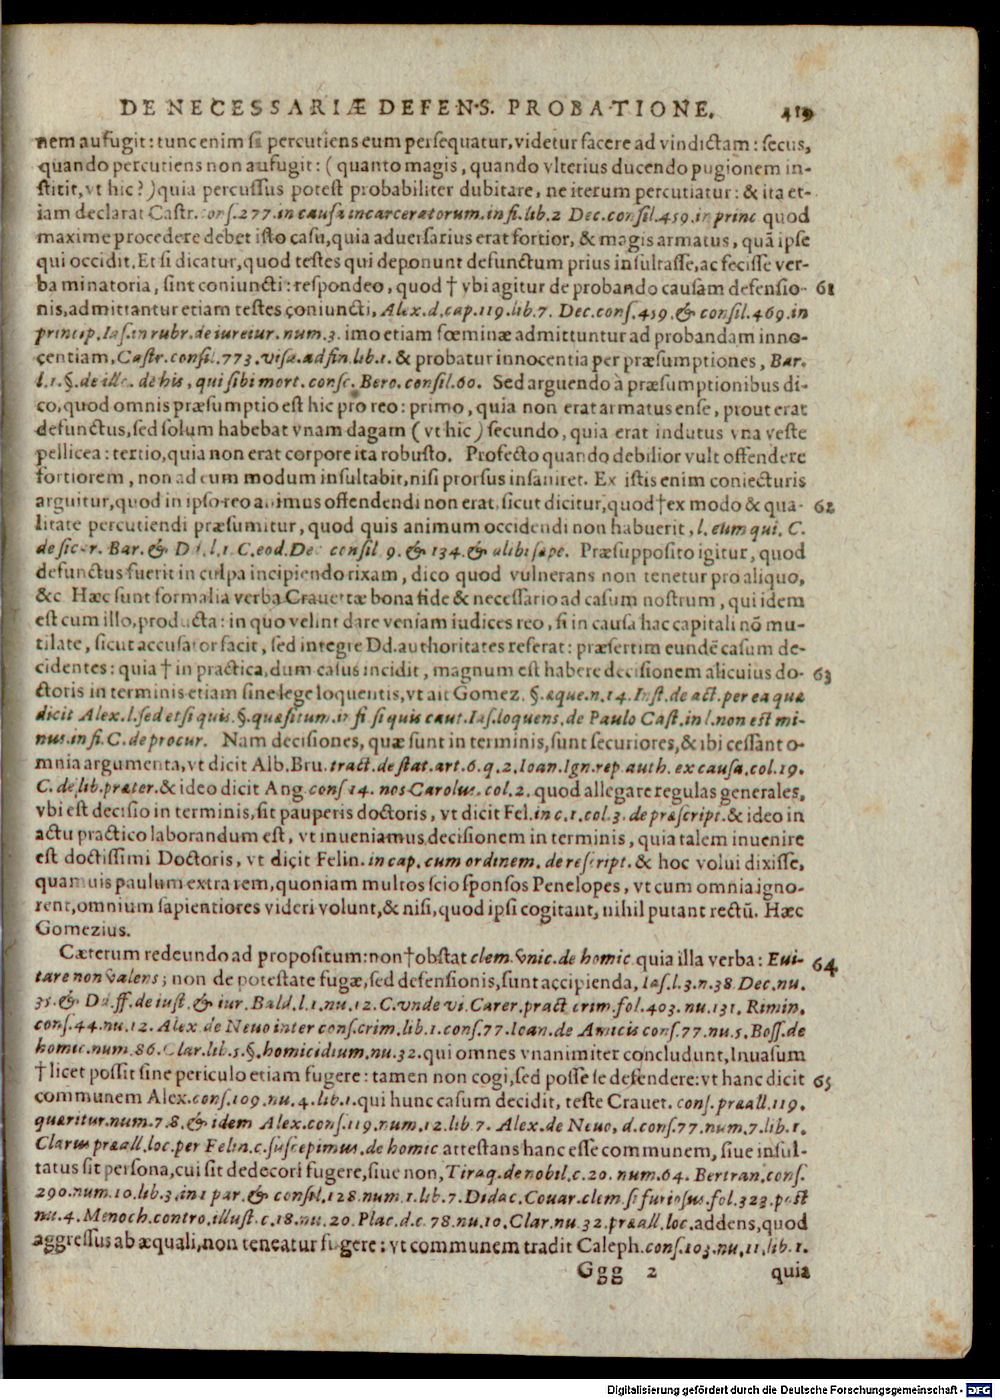 DE NECESSARIÆ DEFENS. PROBATIONE. 419
nem aufugit: tunc enim si percutiens eum persequatur, videtur facere ad vindictam: secus,
quando percutiens non aufugit: (quanto magis, quando vlterius ducendo pugionem in-
stitit, vt hic?) quia percussus potest probabiliter dubitare, ne iterum percutiatur: & ita et-
iam declarat Castr. cons. 277. in causa incarceratorum. in fi. lib. 2 Dec. consil. 459. in princ quod
maxime procedere debet isto casu, quia aduersarius erat fortior, & magis armatus, quā ipse
qui occidit. Et si dicatur, quod testes qui deponunt defunctum prius insultasse, ac fecisse ver-
ba minatoria, sint coniuncti: respondeo, quod † vbi agitur de probando causam defensio- 61
nis, admittantur etiam testes coniuncti, Alex. d. cap. 119. lib. 7. Dec. cons. 459. & consil. 469. in
princip. Ias. in rubr. de iureiur. num. 3. imo etiam fœminæ admittuntur ad probandam inno-
centiam, Castr. consil. 773. visa. ad fin. lib. 1. & probatur innocentia per præsumptiones, Bar.
l. 1. §. de illo. de his, qui sibi mort. consc. Bero. consil. 60. Sed arguendo à præsumptionibus di-
co, quod omnis præsumptio est hic pro reo: primo, quia non erat armatus ense, prout erat
defunctus, sed solum habebat vnam dagam (vt hic) secundo, quia erat indutus vna veste
pellicea: tertio, quia non erat corpore ita robusto. Profecto quando debilior vult offendere
fortiorem, non ad eum modum insultabit, nisi prorsus insaniret. Ex istis enim coniecturis
arguitur, quod in ipso reo animus offendendi non erat, sicut dicitur, quod † ex modo & qua- 62
litate percutiendi præsumitur, quod quis animum occidendi non habuerit, l. eum qui. C.
de sicar. Bar. & Dd. l. 1 C. eod. Dec consil 9. & 134. & alibi sæpe. Præsupposito igitur, quod
defunctus fuerit in culpa incipiendo rixam, dico quod vulnerans non tenetur pro aliquo,
&c Hæc sunt formalia verba Crauettæ bona fide & necessario ad casum nostrum, qui idem
est cum illo, producta: in quo velint dare veniam iudices reo, si in causa hac capitali nō mu-
tilate, sicut accusator facit, sed integre Dd. authoritates referat: præsertim eundē casum de-
cidentes: quia † in practica, dum casus incidit, magnum est habere decisionem alicuius do- 63
ctoris in terminis etiam sine lege loquentis, vt ait Gomez. §. æque. n. 14. Inst. de act. per ea quæ
dicit Alex. l. sed et si quis. §. quæsitum. in fi si quis caut. Ias. loquens. de Paulo Cast. in l. non est mi-
nus. in fi. C. de procur. Nam decisiones, quæ sunt in terminis, sunt securiores, & ibi cessant o-
mnia argumenta, vt dicit Alb. Bru. tract. de stat. art. 6. q. 2. Ioan. Ign. rep. auth. ex causa. col. 19.
C. de lib. præter. & ideo dicit Ang. cons 14. nos Carolus. col. 2. quod allegare regulas generales,
vbi est decisio in terminis, sit pauperis doctoris, vt dicit Fel. in c. 1. col. 3. de præscript. & ideo in
actu practico laborandum est, vt inueniamus decisionem in terminis, quia talem inuenire
est doctissimi Doctoris, vt dicit Felin. in cap. cum ordinem. de rescript. & hoc volui dixisse,
quamuis paulum extra rem, quoniam multos scio sponsos Penelopes, vt cum omnia igno-
rent, omnium sapientiores videri volunt, & nisi, quod ipsi cogitant, nihil putant rectū. Hæc
Gomezius.
Cæterum redeundo ad propositum: non † obstat clem. vnic. de homic. quia illa verba: Eui- 64
tare non valens; non de potestate fugæ, sed defensionis, sunt accipienda, Ias. l. 3. n. 38. Dec. nu.
35. & Dd. ff. de iust. & iur. Bald. l. 1. nu. 12. C. vnde vi. Carer. pract crim. fol. 403. nu. 131. Rimin.
cons. 44. nu. 12. Alex. de Neuo inter cons. crim. lib. 1. cons. 77. Ioan. de Amicis cons. 77. nu. 5. Boss. de
homic. num. 86. Clar. lib. 5. §. homicidium. nu. 32. qui omnes vnanimiter concludunt, Inuasum
† licet possit sine periculo etiam fugere: tamen non cogi, sed posse se defendere: vt hanc dicit 65
communem Alex. cons. 109. nu. 4. lib. 1. qui hunc casum decidit, teste Crauet. cons. præall. 119.
quæritur. num. 7. 8. & idem Alex. cons. 119. num. 12. lib. 7. Alex. de Neuo, d. cons. 77. num. 7. lib. 1.
Clarus præall. loc. per Felin. c. suscepimus. de homic attestans hanc esse communem, siue insul-
tatus sit persona, cui sit dedecori fugere, siue non, Tiraq. de nobil. c. 20. num. 64. Bertran. cons.
290. num. 10. lib. 3. in 1 par. & consil. 128. num. 1. lib. 7. Didac. Couar. clem. si furiosus. fol. 323. post
nu. 4. Menoch. contro. illust. c. 18. nu. 20. Plac. d. c. 78. nu. 10. Clar. nu. 32. præall. loc. addens, quod
aggressus ab æquali, non teneatur fugere: vt communem tradit Caleph. cons. 103. nu, 11. lib. 1.
Ggg 2 quia
Digitalisierung gefördert durch die Deutsche Forschungsgemeinschaft - DFG